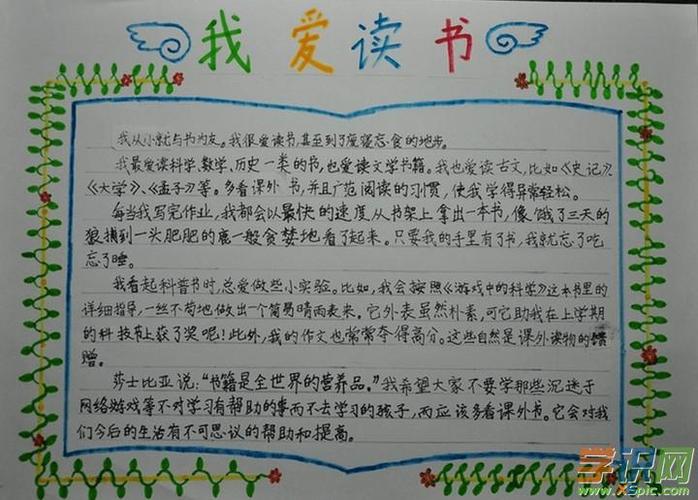 我爱读书
我从小就与书为友。我很爱读书,甚至到了废寝忘食的地步。
我最爱读科学、数学、历史一类的书,也爱读文学书籍。我也爱读古文,比如《史记》
《大学》、《孟子》等。多看课外书,并且广范阅读的习惯,使我学得异常轻松。
每当我写完作业,我都会以最快的速度从书架上拿出一本书,像饿了三天的
狼摸到一头肥肥的鹿一般贪婪地看了起来。只要我的手里有了书,我就忘了吃
忘了睡。
我看起科普书时,总爱做些小实验。比如,我会按照《游戏中的科学》这本书里的
详细指导,一丝不苟地做出一个简易晴雨表来。它外表虽然朴素,可它助我在上学期
的科技节上获了奖呢!此外,我的作文也常常夺得高分。这些自然是课外读物的馈
赠。
莎士比亚说:“书籍是全世界的营养品。”我希望大家不要学那些沉迷于
网络游戏等不对学习有帮助的事而不去学习的孩子,而应该多看课外书。它会对我
们今后的生活有不可思议的帮助和提高。
学识网
www.XSpic.com